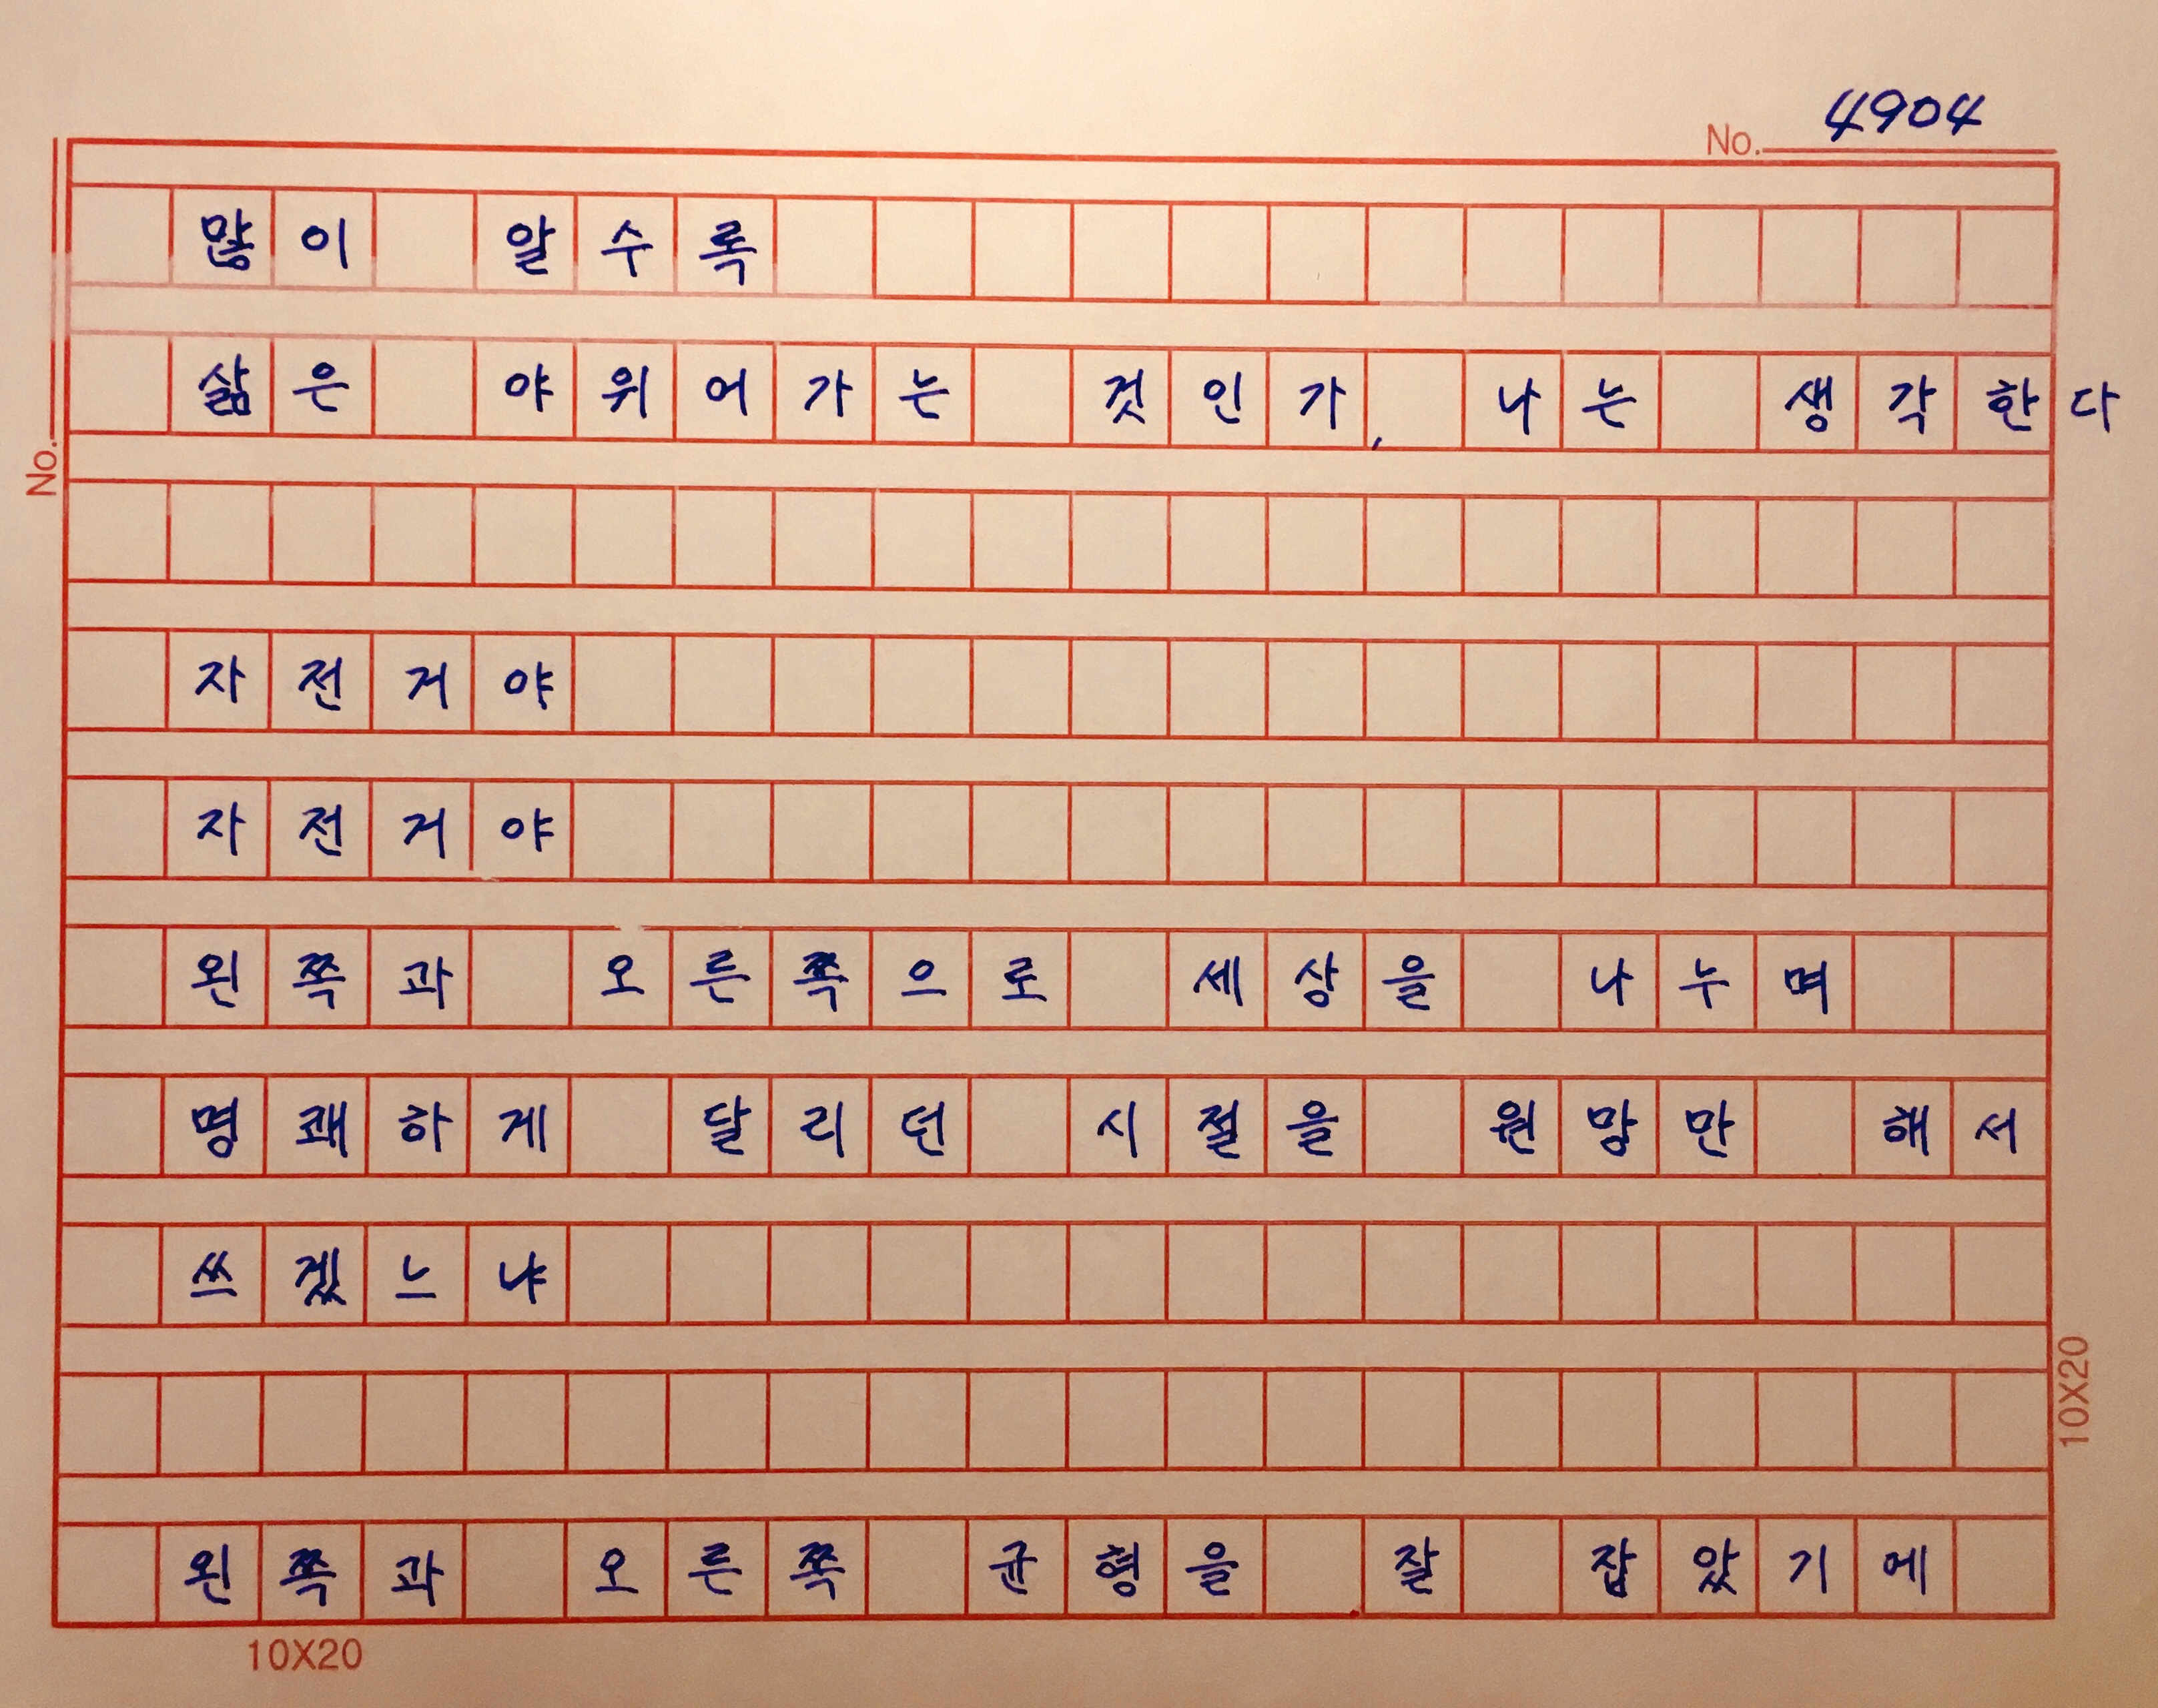 No. 4904
많이 알수록
삶은 야위어가는 것인가, 나는 생각한다
No.
자전거야
자전거야
왼쪽과 오른쪽으로 세상을 나누며
명쾌하게 달리던 시절을 원망만 해서
쓰겠느냐
10X20
왼쪽과 오른쪽 균형을 잘 잡았기에
10X20